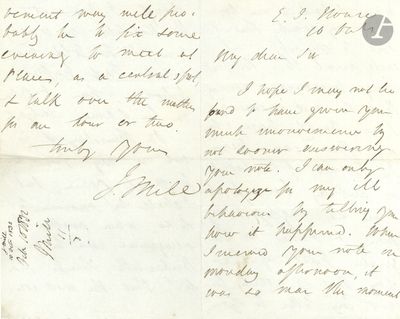 E. I. House
10 Oct.
My dear Sir
I hope I may not be
found to have given you
much inconvenience by
not sooner answering
your note. I can only
apologize for my ill
behaviour by telling you
how it happened. When
I received your note on
monday afternoon, it
was so near the moment
venient way will pro-
bably be to fix some
evening to meet at
as a central spot,
& talk over the matter
for an hour or two.
truly yours
J. Mill
J. Mill
10 Oct. 1832
Oct. 10 1832
J Mill